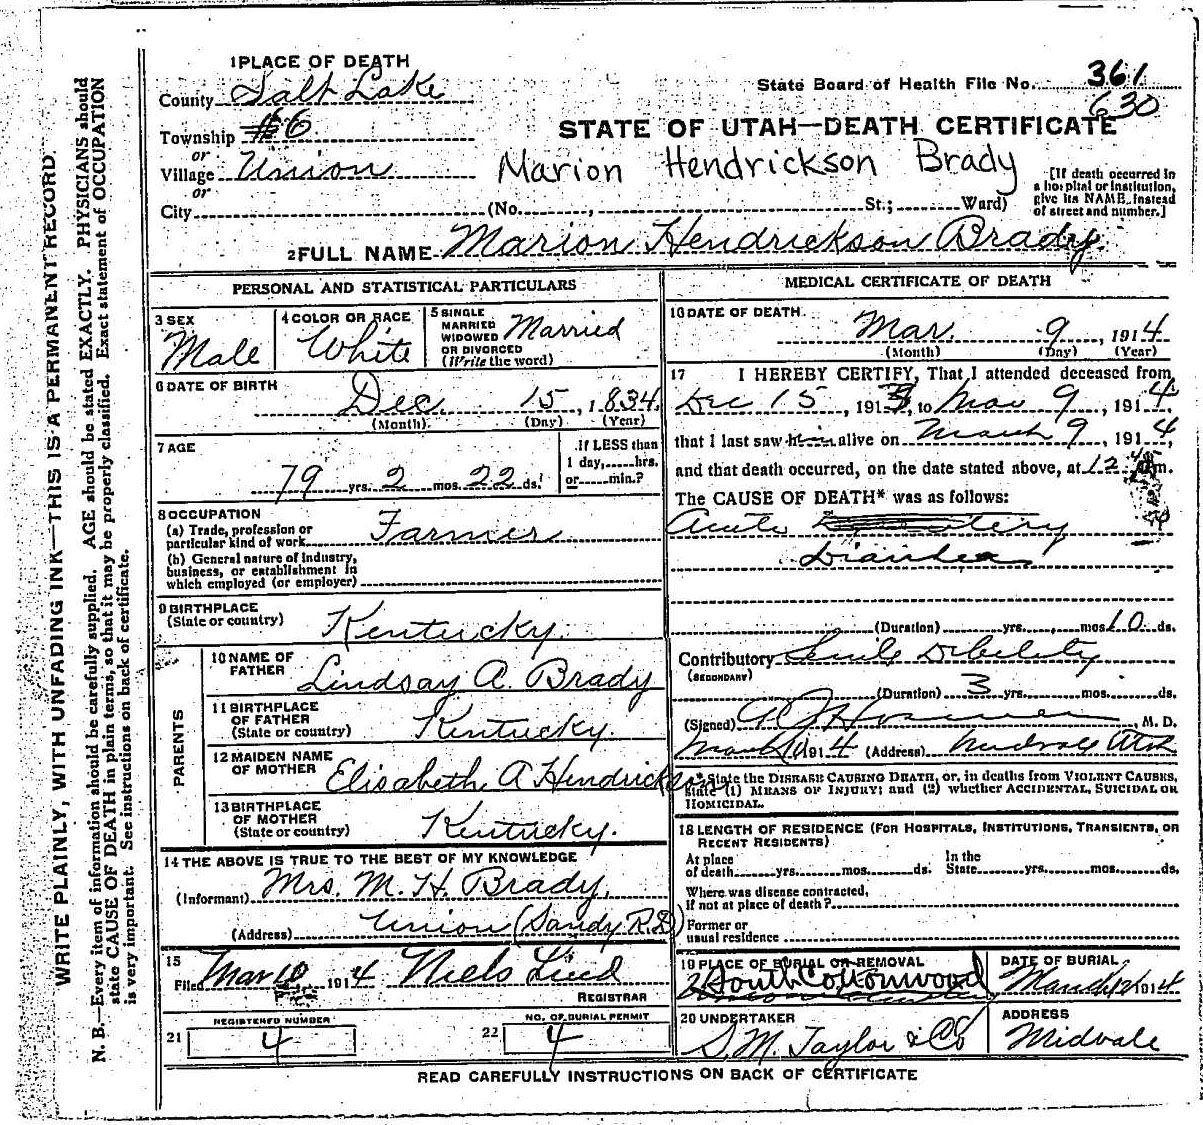 WRITE PLAINLY, WITH UNFADING INK—THIS IS A PERMANENT RECORD
N. B.—Every item of information should be carefully supplied. AGE should be stated EXACTLY. PHYSICIANS should
state CAUSE OF DEATH in plain terms, so that it may be properly classified. Exact statement of OCCUPATION
is very important. See instructions on back of certificate.
1 PLACE OF DEATH
County Salt Lake
State Board of Health File No. 361
630
Township #6
STATE OF UTAH—DEATH CERTIFICATE
or
Village Union
Marion Hendrickson Brady
or
City (No. , St.; Ward)
[If death occurred in
a hospital or institution,
give its NAME instead
of street and number.]
2 FULL NAME Marion Hendrickson Brady
PERSONAL AND STATISTICAL PARTICULARS
3 SEX
Male
4 COLOR OR RACE
White
5 SINGLE
MARRIED
WIDOWED
OR DIVORCED
(Write the word)
Married
6 DATE OF BIRTH
Dec. 15, 1834.
(Month) (Day) (Year)
7 AGE
79 yrs. 2 mos. 22 ds.
If LESS than
1 day, hrs.
or min.?
8 OCCUPATION
(a) Trade, profession or
particular kind of work Farmer
(b) General nature of industry,
business, or establishment in
which employed (or employer)
9 BIRTHPLACE
(State or country) Kentucky
PARENTS
10 NAME OF
FATHER Lindsay A. Brady
11 BIRTHPLACE
OF FATHER
(State or country) Kentucky.
12 MAIDEN NAME
OF MOTHER Elisabeth A Hendrickson
13 BIRTHPLACE
OF MOTHER
(State or country) Kentucky.
14 THE ABOVE IS TRUE TO THE BEST OF MY KNOWLEDGE
(Informant) Mrs. M. H. Brady,
(Address) Union (Sandy R.D)
15
Filed Mar 10 1914 Niels Lind
REGISTRAR
21 REGISTERED NUMBER
4
22 NO. OF BURIAL PERMIT
4
MEDICAL CERTIFICATE OF DEATH
16 DATE OF DEATH
Mar. 9, 1914
(Month) (Day) (Year)
17 I HEREBY CERTIFY, That I attended deceased from
Dec 15, 1913, to Mar 9, 1914,
that I last saw him alive on March 9, 1914,
and that death occurred, on the date stated above, at 12 m.
The CAUSE OF DEATH* was as follows:
Acute
Diarrhea
(Duration) yrs. mos. 10 ds.
Contributory Senile Debility
(SECONDARY)
(Duration) 3 yrs. mos. ds.
(Signed) M. D.
March 10 1914 (Address) Midvale Utah
* State the DISEASE CAUSING DEATH, or, in deaths from VIOLENT CAUSES,
state (1) MEANS OF INJURY; and (2) whether ACCIDENTAL, SUICIDAL OR
HOMICIDAL.
18 LENGTH OF RESIDENCE (FOR HOSPITALS, INSTITUTIONS, TRANSIENTS, OR
RECENT RESIDENTS)
At place
of death yrs. mos. ds.
In the
State yrs. mos. ds.
Where was disease contracted,
if not at place of death?
Former or
usual residence
19 PLACE OF BURIAL OR REMOVAL
South Cottonwood
DATE OF BURIAL
March 12 1914
20 UNDERTAKER
S. M. Taylor & Co
ADDRESS
Midvale
READ CAREFULLY INSTRUCTIONS ON BACK OF CERTIFICATE